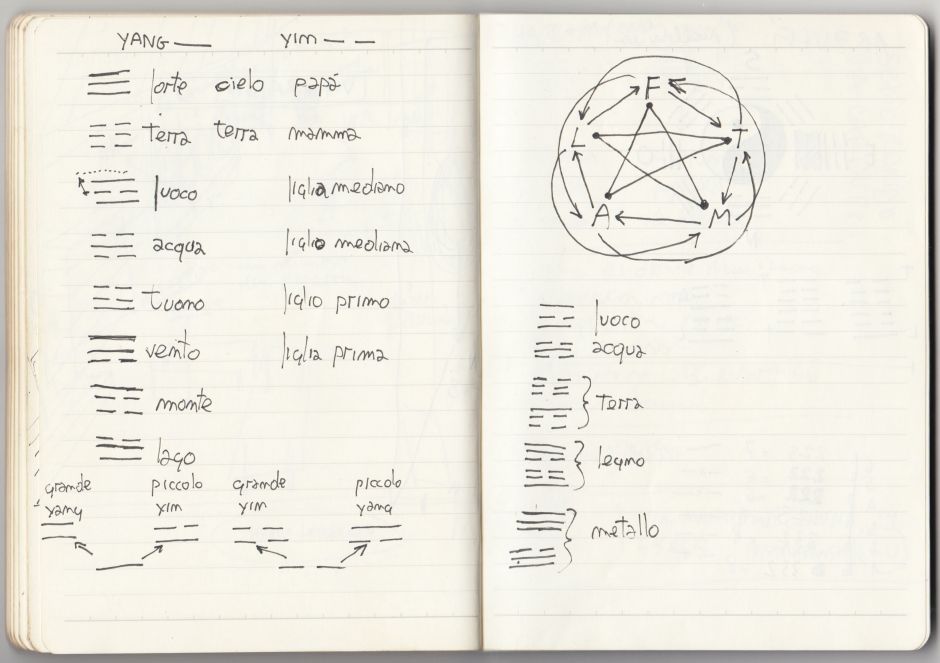 YANG YIM
forte cielo papá
terra terra mamma
fuoco figlia mediano
acqua figlio mediana
tuono figlio primo
vento figlia prima
monte
lago
grande yang
piccolo yim
grande yim
piccolo yang
F
L T
A M
fuoco
acqua
terra
legno
metallo